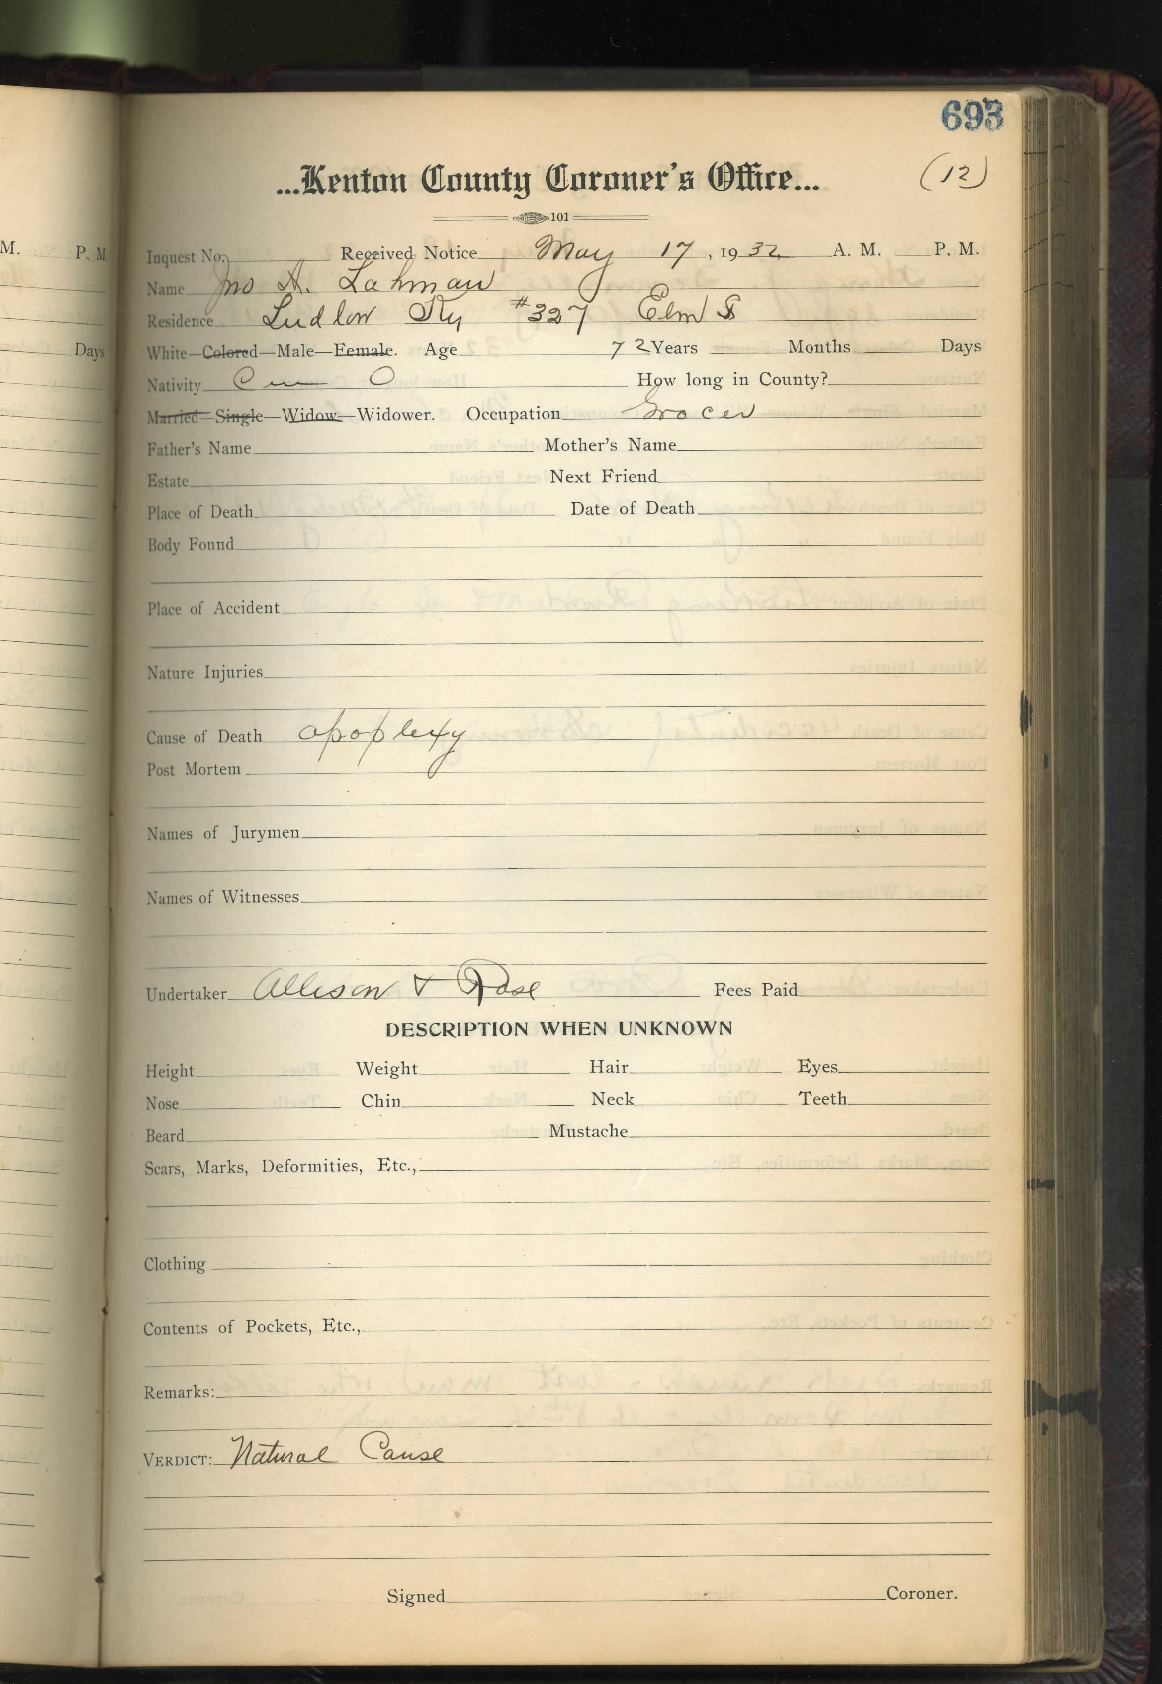 693
...Kenton County Coroner's Office...
(12)
101
M. P. M.
Inquest No. Received Notice May 17, 1932 A. M. P. M.
Name Jno A. Lahman
Residence Ludlow Ky #327 Elm St
Days
White—Colored—Male—Female. Age 72 Years Months Days
Nativity Cin O How long in County?
Married—Single—Widow—Widower. Occupation Grocer
Father's Name Mother's Name
Estate Next Friend
Place of Death Date of Death
Body Found
Place of Accident
Nature Injuries
Cause of Death apoplexy
Post Mortem
Names of Jurymen
Names of Witnesses
Undertaker Allison & Rose Fees Paid
DESCRIPTION WHEN UNKNOWN
Height Weight Hair Eyes
Nose Chin Neck Teeth
Beard Mustache
Scars, Marks, Deformities, Etc.,
Clothing
Contents of Pockets, Etc.,
Remarks:
VERDICT: Natural Cause
Signed Coroner.